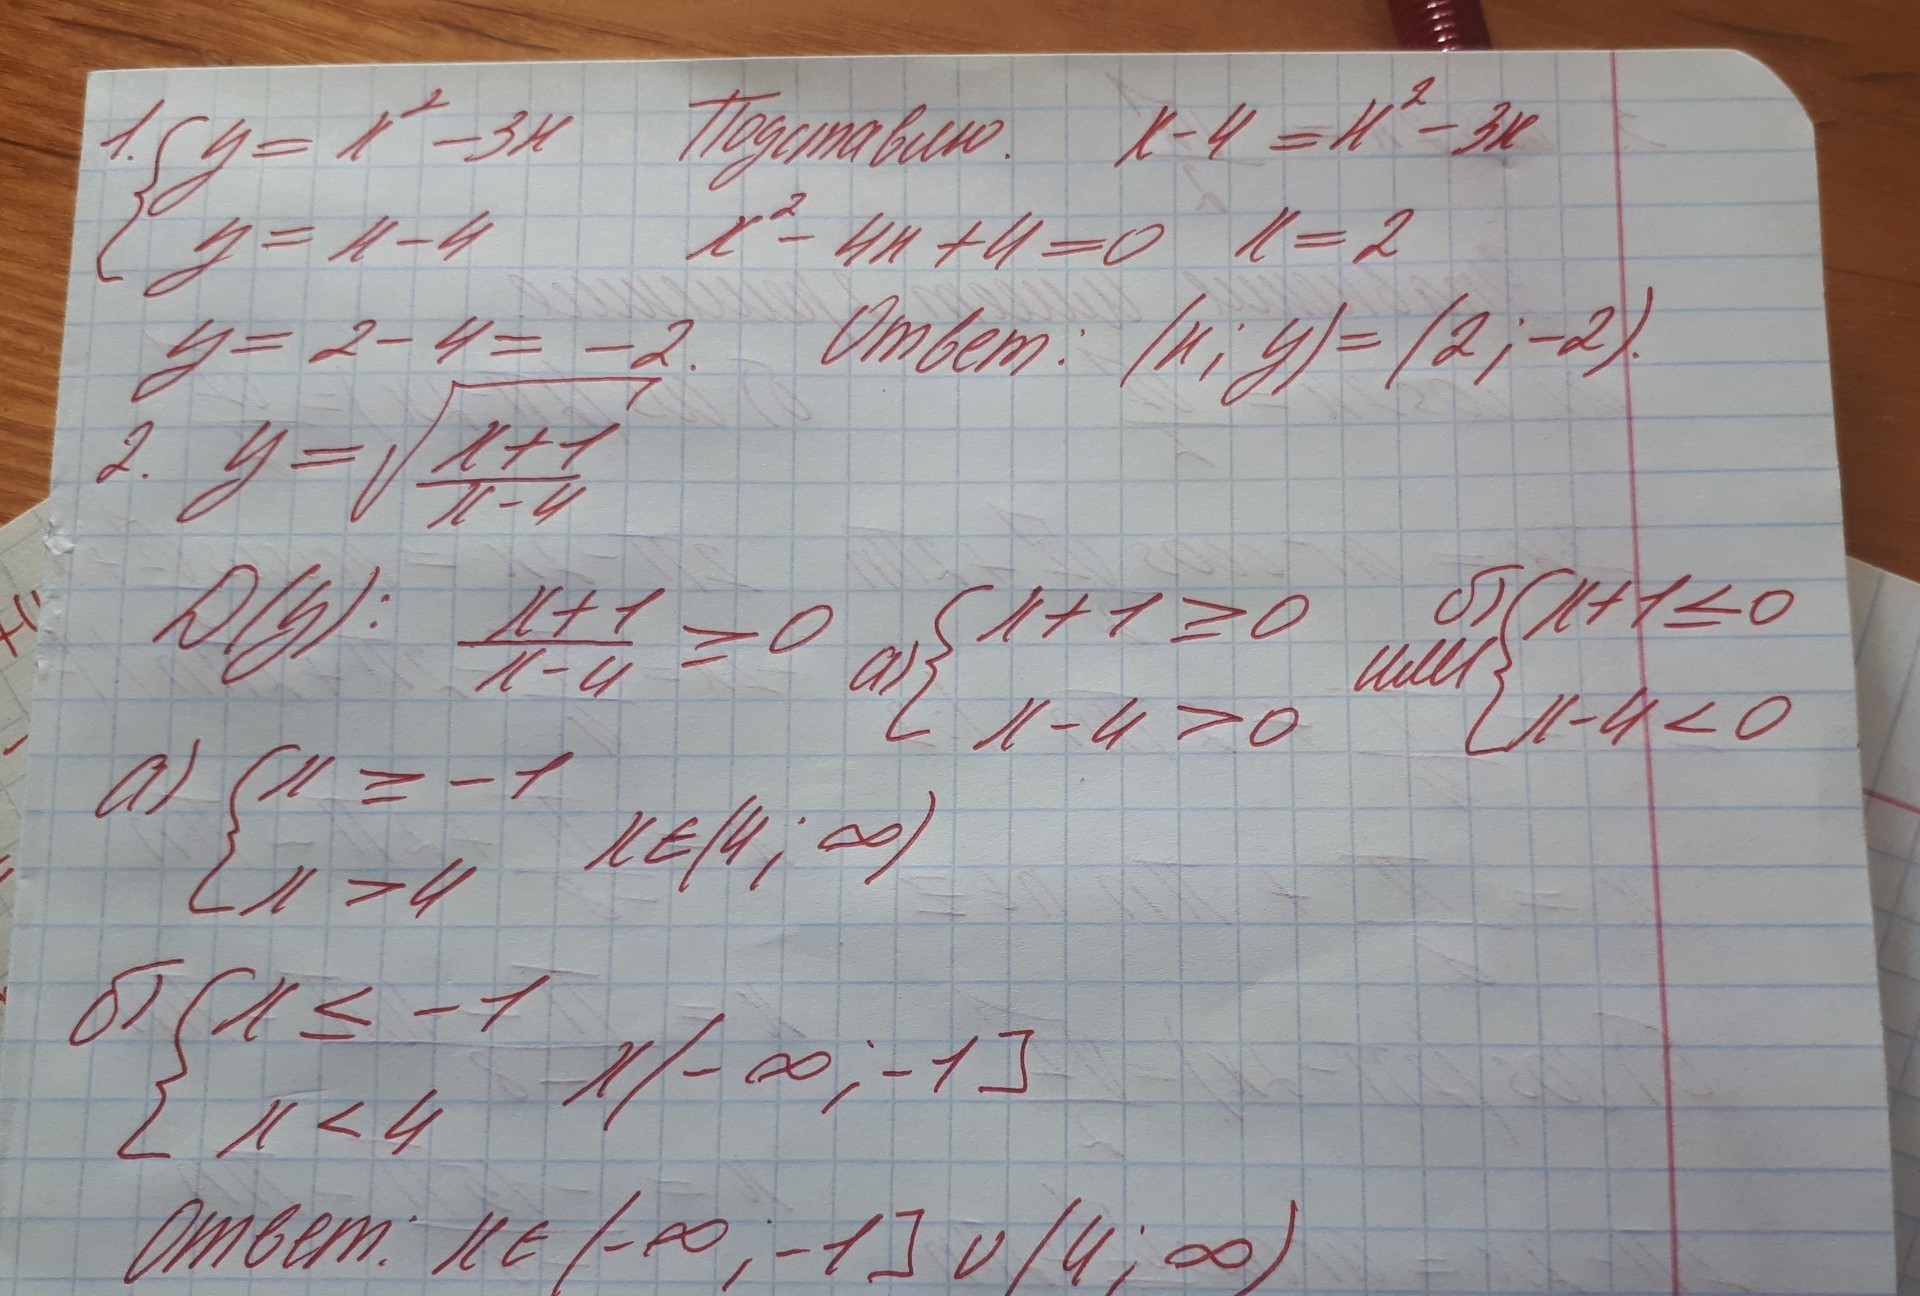 1. { y = x² - 3x Подставлю. x - 4 = x² - 3x
y = x - 4 x² - 4x + 4 = 0 x = 2
y = 2 - 4 = -2. Ответ: (x; y) = (2; -2).
2. y = √((x+1)/(x-4))
D(y): (x+1)/(x-4) ≥ 0 а) { x+1 ≥ 0 или б) { x+1 ≤ 0
x - 4 > 0 x - 4 < 0
а) { x ≥ -1
x > 4 x ∈ (4; ∞)
б) { x ≤ -1
x < 4 x (-∞; -1]
Ответ: x ∈ (-∞; -1] ∪ (4; ∞)